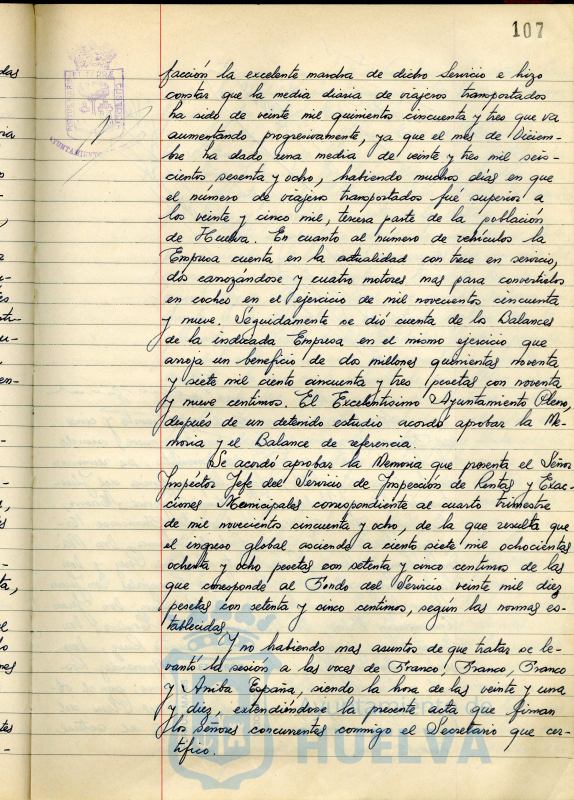 107
facción la excelente marcha de dicho Servicio e hizo
constar que la media diaria de viajeros transportados
ha sido de veinte mil quinientos cincuenta y tres que va
aumentando progresivamente, ya que el mes de Diciem-
bre ha dado una media de veinte y tres mil seis-
cientos sesenta y ocho, habiendo muchos días en que
el número de viajeros transportados fué superior a
los veinte y cinco mil, tercera parte de la población
de Huelva. En cuanto al número de vehículos la
Empresa cuenta en la actualidad con trece en servicio,
dos carrozándose y cuatro motores mas para convertirlos
en coches en el ejercicio de mil novecientos cincuenta
y nueve. Seguidamente se dió cuenta de los Balances
de la indicada Empresa en el mismo ejercicio que
arroja un beneficio de dos millones quinientas noventa
y siete mil ciento cincuenta y tres pesetas con noventa
y nueve centimos. El Excelentísimo Ayuntamiento Pleno,
después de un detenido estudio acordó aprobar la Me-
moria y el Balance de referencia.
Se acordó aprobar la Memoria que presenta el Señor
Inspector Jefe del Servicio de Inspección de Rentas y Exac-
ciones Municipales correspondiente al cuarto trimestre
de mil novecientos cincuenta y ocho, de la que resulta que
el ingreso global asciende a ciento siete mil ochocientas
ochenta y ocho pesetas con setenta y cinco centimos de las
que corresponde al Fondo del Servicio veinte mil diez
pesetas con setenta y cinco centimos, según las normas es-
tablecidas.
Y no habiendo mas asuntos de que tratar se le-
vantó la sesión a las voces de Franco! Franco, Franco
y Arriba España, siendo la hora de las veinte y una
y diez, extendiéndose la presente acta que firman
los señores concurrentes conmigo el Secretario que cer-
tifico.
HUELVA